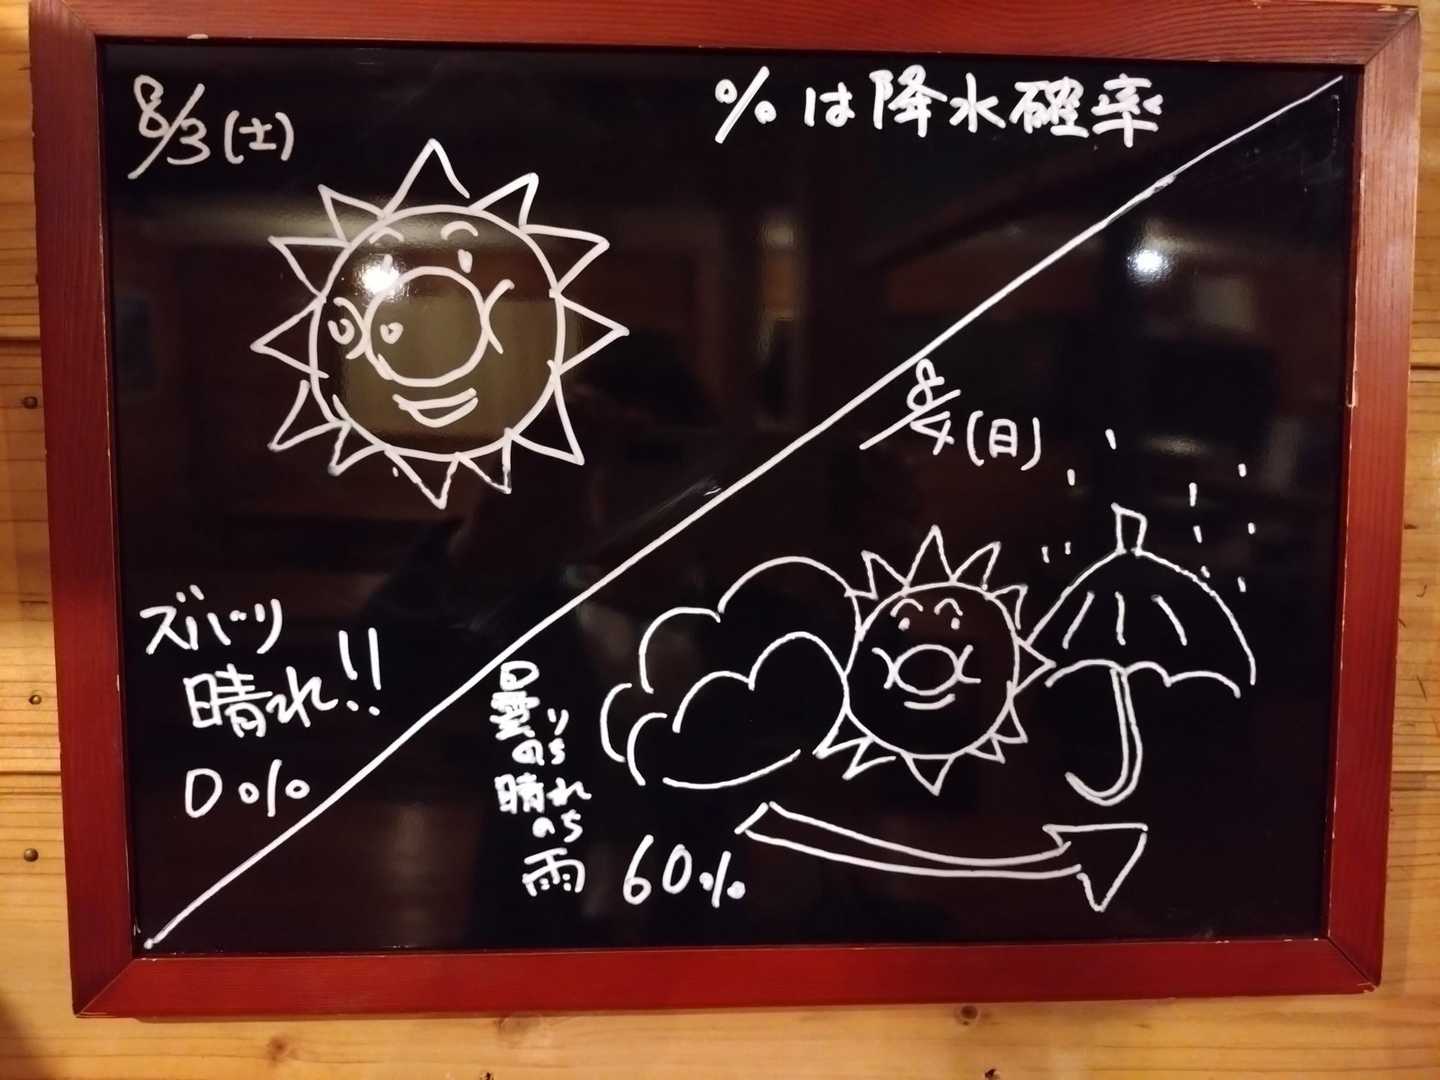 8/3(土)
%は降水確率
ズバリ
晴れ!!
0%
8/4(日)
曇り
のち
晴れ
のち
雨
60%